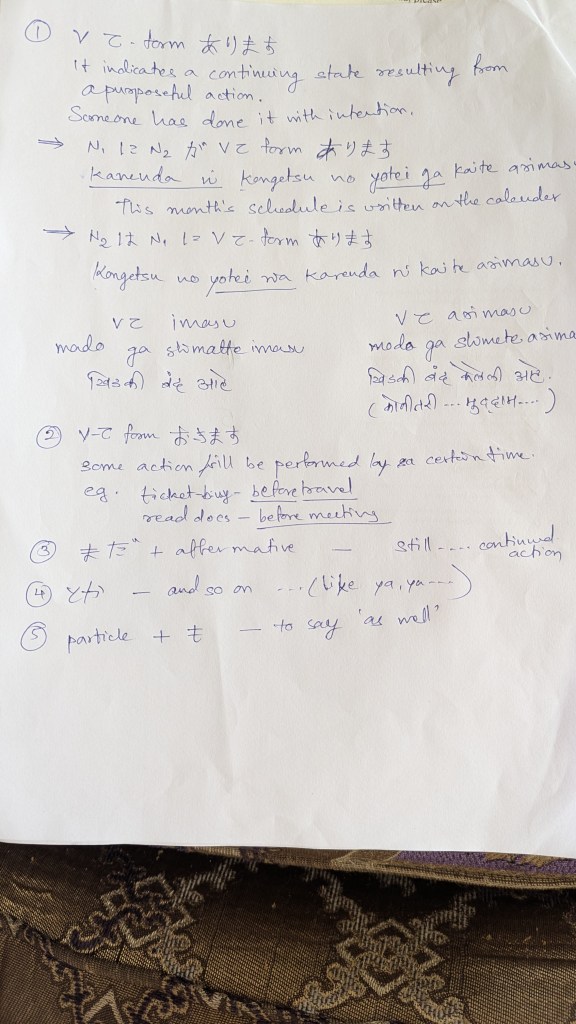 ① V て-form あります
It indicates a continuing state resulting from
a purposeful action.
Someone has done it with intention.
⇒ N₁ に N₂ が Vて form あります
Karenda ni kongetsu no yotei ga kaite arimasu
This month's schedule is written on the calender
⇒ N₂ は N₁ に Vて-form あります
Kongetsu no yotei wa karenda ni kaite arimasu.
Vて imasu Vて arimasu
mado ga shimatte imasu mado ga shimete arima
खिडकी बंद आहे खिडकी बंद केलेली आहे.
(कोणीतरी ... मुद्दाम....)
② V-て form おきます
some action will be performed by a certain time.
eg. ticket-buy- before travel
read docs - before meeting
③ まだ + affermative — still .... continued
action
④ とか — and so on ... (like ya, ya ----)
⑤ particle + も — to say 'as well'